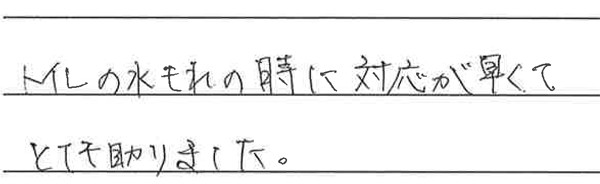 トイレの水もれの時に対応が早くて
とても助かりました。